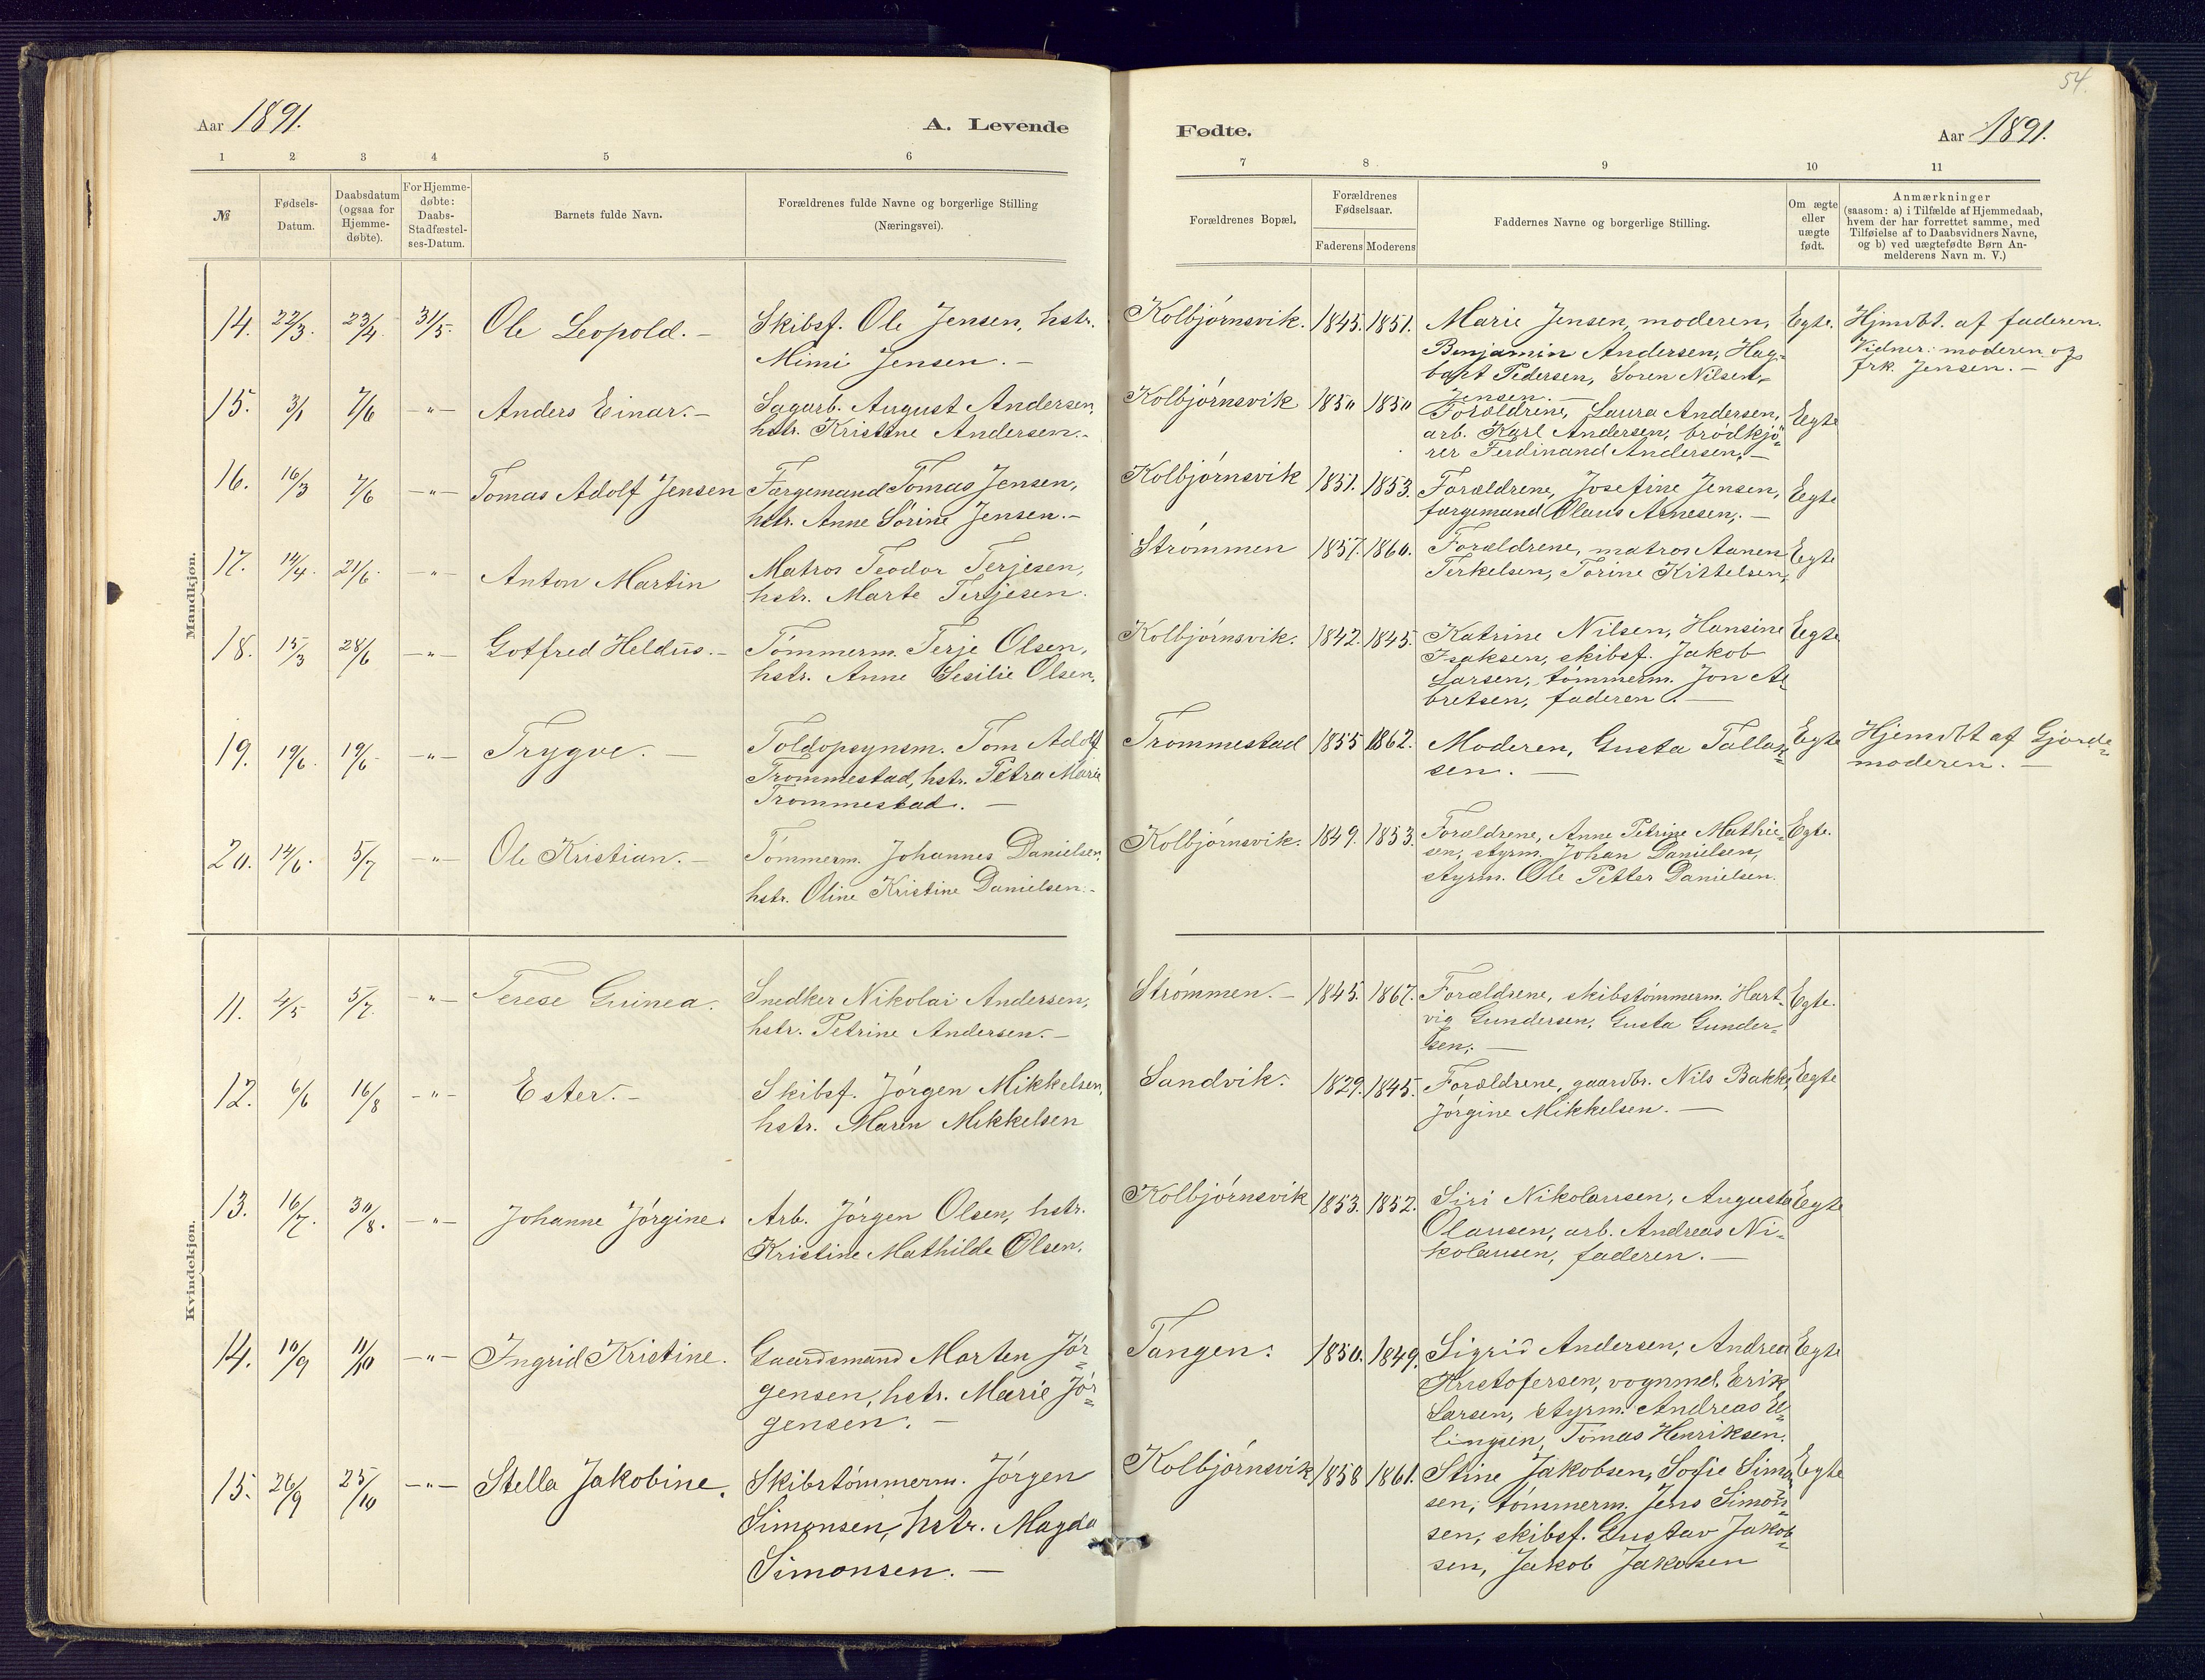 54.
Aar 1891.
A. Levende
Fødte.
Aar 1891.
1 2 3 4 5 6
7 8 9 10 11
№
Fødsels-
Datum.
Daabsdatum
(ogsaa for
Hjemme-
døbte).
For Hjemme-
døbte:
Daabs-
Stadfæstel-
ses-Datum.
Barnets fulde Navn.
Forældrenes fulde Navne og borgerlige Stilling
(Næringsvei).
Forældrenes Bopæl.
Forældrenes
Fødselsaar.
Faderens Moderens
Faddernes Navne og borgerlige Stilling.
Om ægte
eller
uægte
født.
Anmærkninger
(saasom: a) i Tilfælde af Hjemmedaab,
hvem der har forrettet samme, med
Tilføielse af to Daabsvidners Navne,
og b) ved uægtefødte Børn An-
melderens Navn m. V.)
Mandkjøn.
14. 22/3. 23/4. 31/5. Ole Leopold. —
Skibsf. Ole Jensen, hstr.
Mimi Jensen. —
Kolbjörnsvik. 1845. 1851.
Marie Jensen, moderen,
Benjamin Andersen, Hag-
bart Pedersen, Soren Nilsen,
Jensen. —
Egte.
Hjmdbt. af faderen.
Vidner: moderen og
frk. Jensen. —
15. 3/1 7/6 -"- Anders Einar. —
Sagarb. August Andersen,
hstr. Kristine Andersen. —
Kolbjörnsvik 1850 1850
Forældrene, Laura Andersen,
arb. Karl Andersen, brödkjö=
rer Ferdinand Andersen, —
Egte
16. 16/3 7/6 -"- Tomas Adolf Jensen
Færgemand Tomas Jensen,
hstr. Anne Sörine Jensen. —
Kolbjörnsvik 1851. 1853.
Forældrene, Josefine Jensen,
færgemand Olaus Arnesen, —
Egte
17. 14/4. 21/6. -"- Anton Martin
Matros Teodor Terjesen,
hstr. Marte Terjesen.
Strömmen 1857. 1860.
Forældrene, matros Aanen
Terkelsen, Torine Kittelsen,
Egte
18. 15/3 28/6 -"- Gotfred Heldus. —
Tömmerm. Terje Olsen,
hstr. Anne Sesilie Olsen.
Kolbjörnsvik. 1842. 1845.
Katrine Nilsen, Hansine
Isaksen, skibsf. Jakob
Larsen, tömmerm. Jon Al=
bretsen, faderen. —
Egte
19. 19/6. 19/6 -"- Trygve. —
Toldopsynsm. Tom Adolf
Trommestad, hstr. Petra Marie
Trommestad. —
Trommestad 1855 1862.
Moderen, Gusta Tallak=
sen. —
Egte
Hjemdbt af Gjorde=
moderen. —
20. 14/6. 5/7 -"- Ole Kristian. —
Tömmerm. Johannes Danielsen,
hstr. Oline Kristine Danielsen. —
Kolbjörnsvik. 1849. 1853.
Forældrene, Anne Petrine Mathie=
sen, styrm. Johan Danielsen,
styrm. Ole Petter Danielsen.
Egte.
Kvindekjøn.
11. 4/5 5/7. -"- Terese Guinea.
Snedker Nikolai Andersen,
hstr. Petrine Andersen. —
Strömmen. — 1845. 1867.
Forældrene, skibstömmerm. Hart-
vig Gundersen, Gusta Gunder=
sen, —
Egte.
12. 6/6 16/8 -"- Ester. —
Skibsf. Jörgen Mikkelsen,
hstr. Maren Mikkelsen
Sandvik. 1829. 1845.
Forældrene, gaardbr. Nils Bakke,
Jörgine Mikkelsen. —
Egte
13. 16/7. 30/8. -"- Johanne Jörgine.
Arb. Jörgen Olsen, hstr.
Kristine Mathilde Olsen.
Kolbjörnsvik 1853. 1852.
Siri Nikolausen, Augusta
Olausen, arb. Andreas Ni-
kolausen, faderen. —
Egte
14. 10/9 11/10 -"- Ingrid Kristine.
Gaardsmand Morten Jör=
gensen, hstr. Marie Jör=
gensen. —
Tangen. 1850. 1849.
Sigrid Andersen, Andrea
Kristofersen, vognmd. Erik
Larsen, styrm. Andreas El=
lingsen, Tomas Henriksen.
Egte
15. 26/9 25/10 -"- Stella Jakobine.
Skibstömmerm. Jörgen
Simonsen, hstr. Magda
Simonsen. —
Kolbjörnsvik 1858 1861.
Stine Jakobsen, Sofie Simon
sen, tömmerm. Jens Simon=
sen, skibsf. Gustav Jakob=
sen, Jakob Jakobsen
Egte